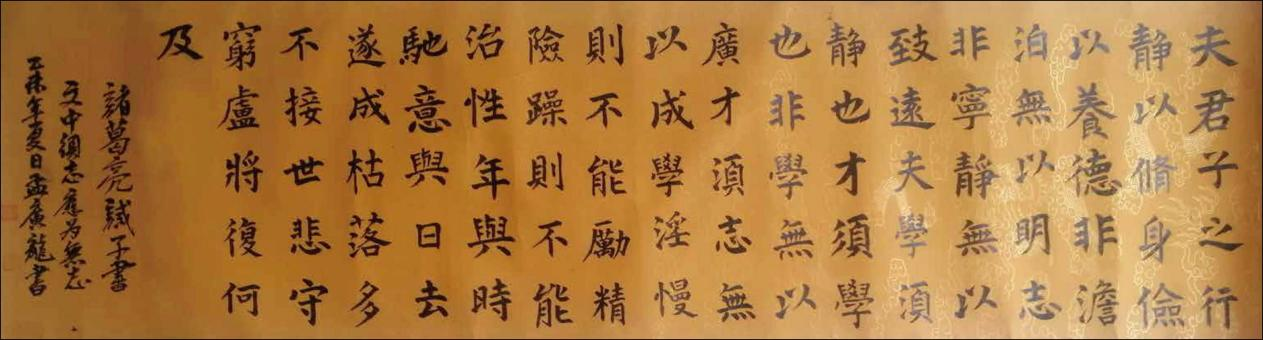 夫君子之行
静以脩身儉
以養德非澹
泊無以明志
非寧靜無以
致遠夫學須
静也才須學
也非學無以
廣才須志無
以成學淫慢
則不能勵精
險躁則不能
治性年與時
馳意與日去
遂成枯落多
不接世悲守
窮盧將復何
及
諸葛亮誡子書
文中須志應為無志
乙未年夏日孟廣龍書